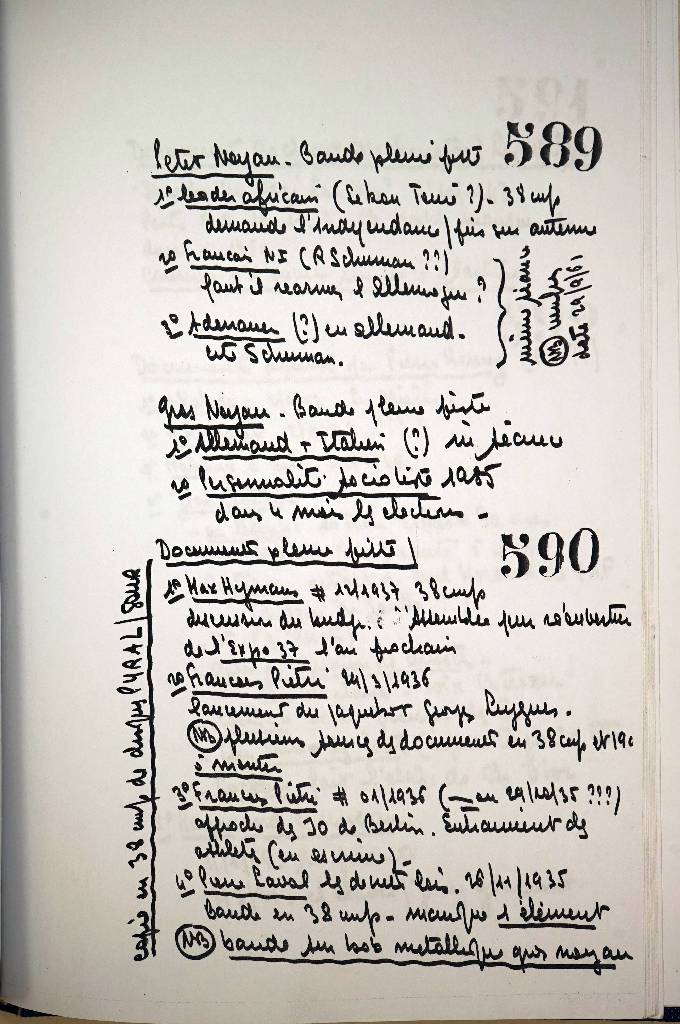 Petit Noyau. Bande pleine piste 589
1º leader africain (Sekou Touré ?). 38 cm/s
demande l'indépendance / pris sur antenne
2º Francais NI (R Schuman ??)
faut il réarmer l'Allemagne ?
3º Adenauer (?) en allemand.
cite Schuman.
même séance
NB
date 29/9/61
gros Noyau. Bande pleine piste
1º Allemand + Italien (?) in séance
2º Personnalité socialiste 1985
dans 4 mois les elections -
Documents pleine piste 590
1º Max Hymans # 12/1937 38 cm/s
discussion du budg. à l'Assemblée pour réouverture
de l'Expo 37 l'an prochain
2º Francois Piétri 24/3/1936
lancement du paquebot Georges Leygues.
NB plusieurs prises de documents en 38 cm/s et 19c
à monter
3º Francois Piétri # 01/1936 (ou 29/10/35 ???)
approche des JO de Berlin. Entrainement des
athlètes (en escrime) -
4º Pierre Laval les decrets lois. 26/11/1935
bande en 38 cm/s - manque 1 élément
NB bande sur bob métallique gros noyau
copie en 38 cm/s de disques PYRAL / Saur